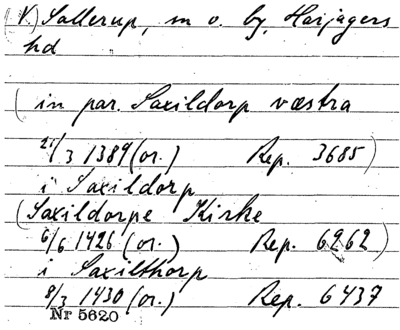 (V.) Sallerup, sn o. by, Harjagers
hd
(in par. Saxildorp væstra
21/3 1389 (or.) Rep. 3685)
i Saxildorp
(Saxildorpe Kirke
6/6 1426 (or.) Rep. 6262)
i Saxilthorp
8/3 1430 (or.) Rep. 6437
Nr 5620